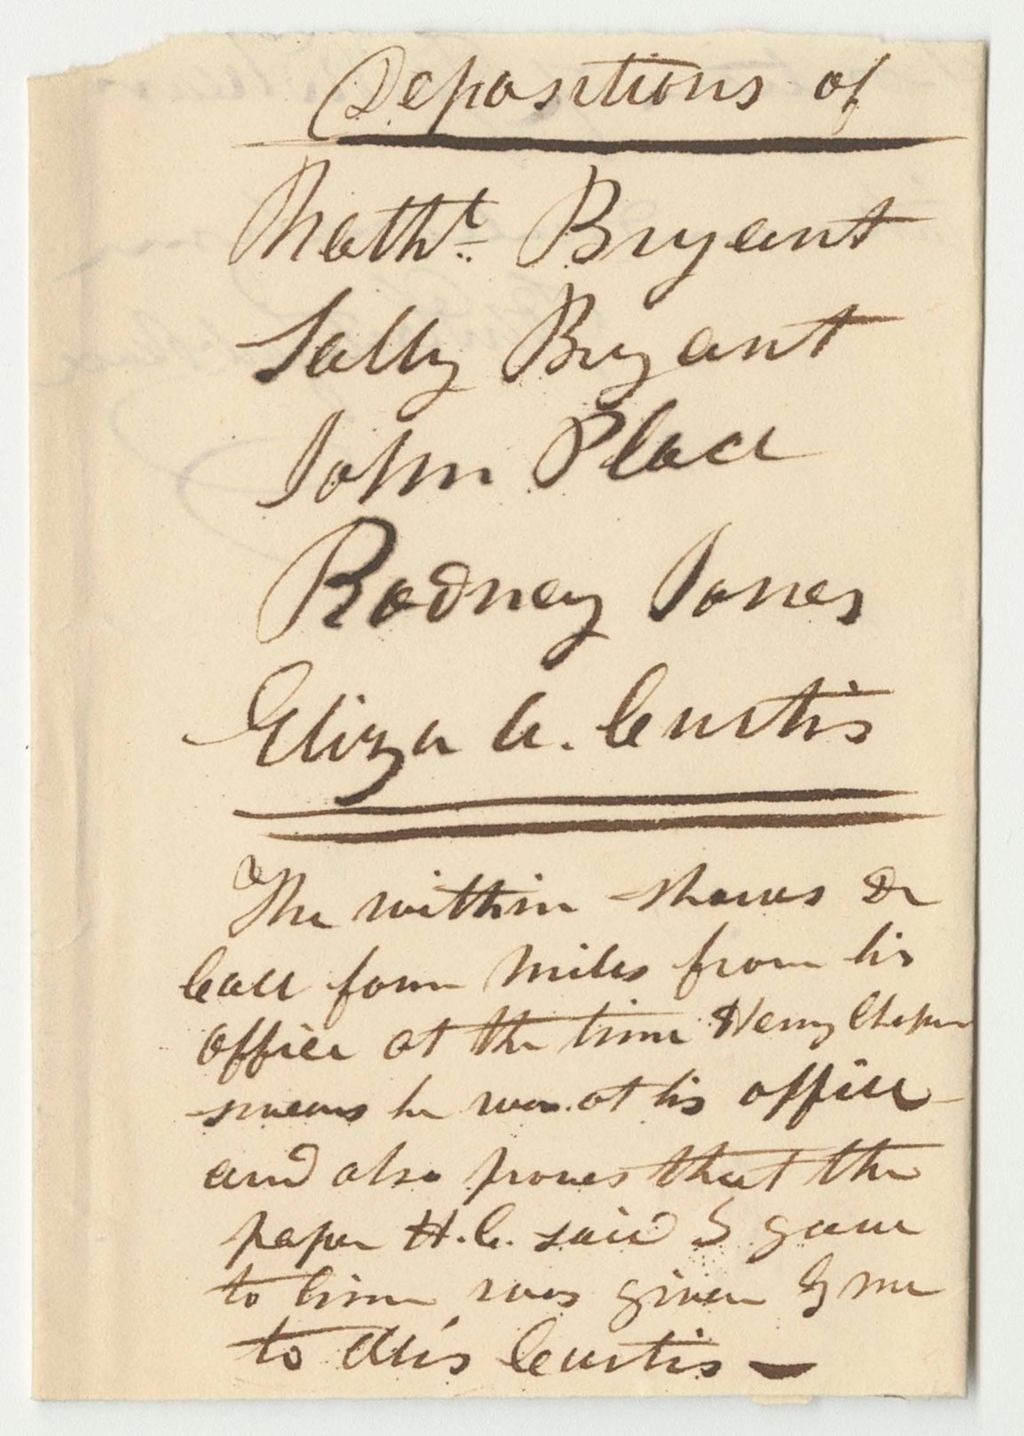 Depositions of
Nathl. Bryant
Sally Bryant
John Place
Rodney Jones
Eliza A. Curtis
The within shows Dr
Call four miles from his
office at the time Henry
swears he was at his office
and also proves that the
paper H.C. said I gave
to him was given by me
to Otis Curtis —